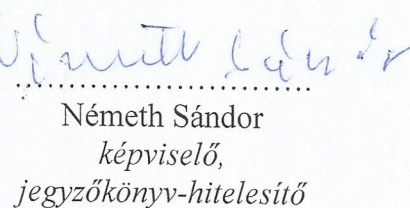 Németh Sándor
Németh Sándor
képviselő,
jegyzőkönyv-hitelesítő